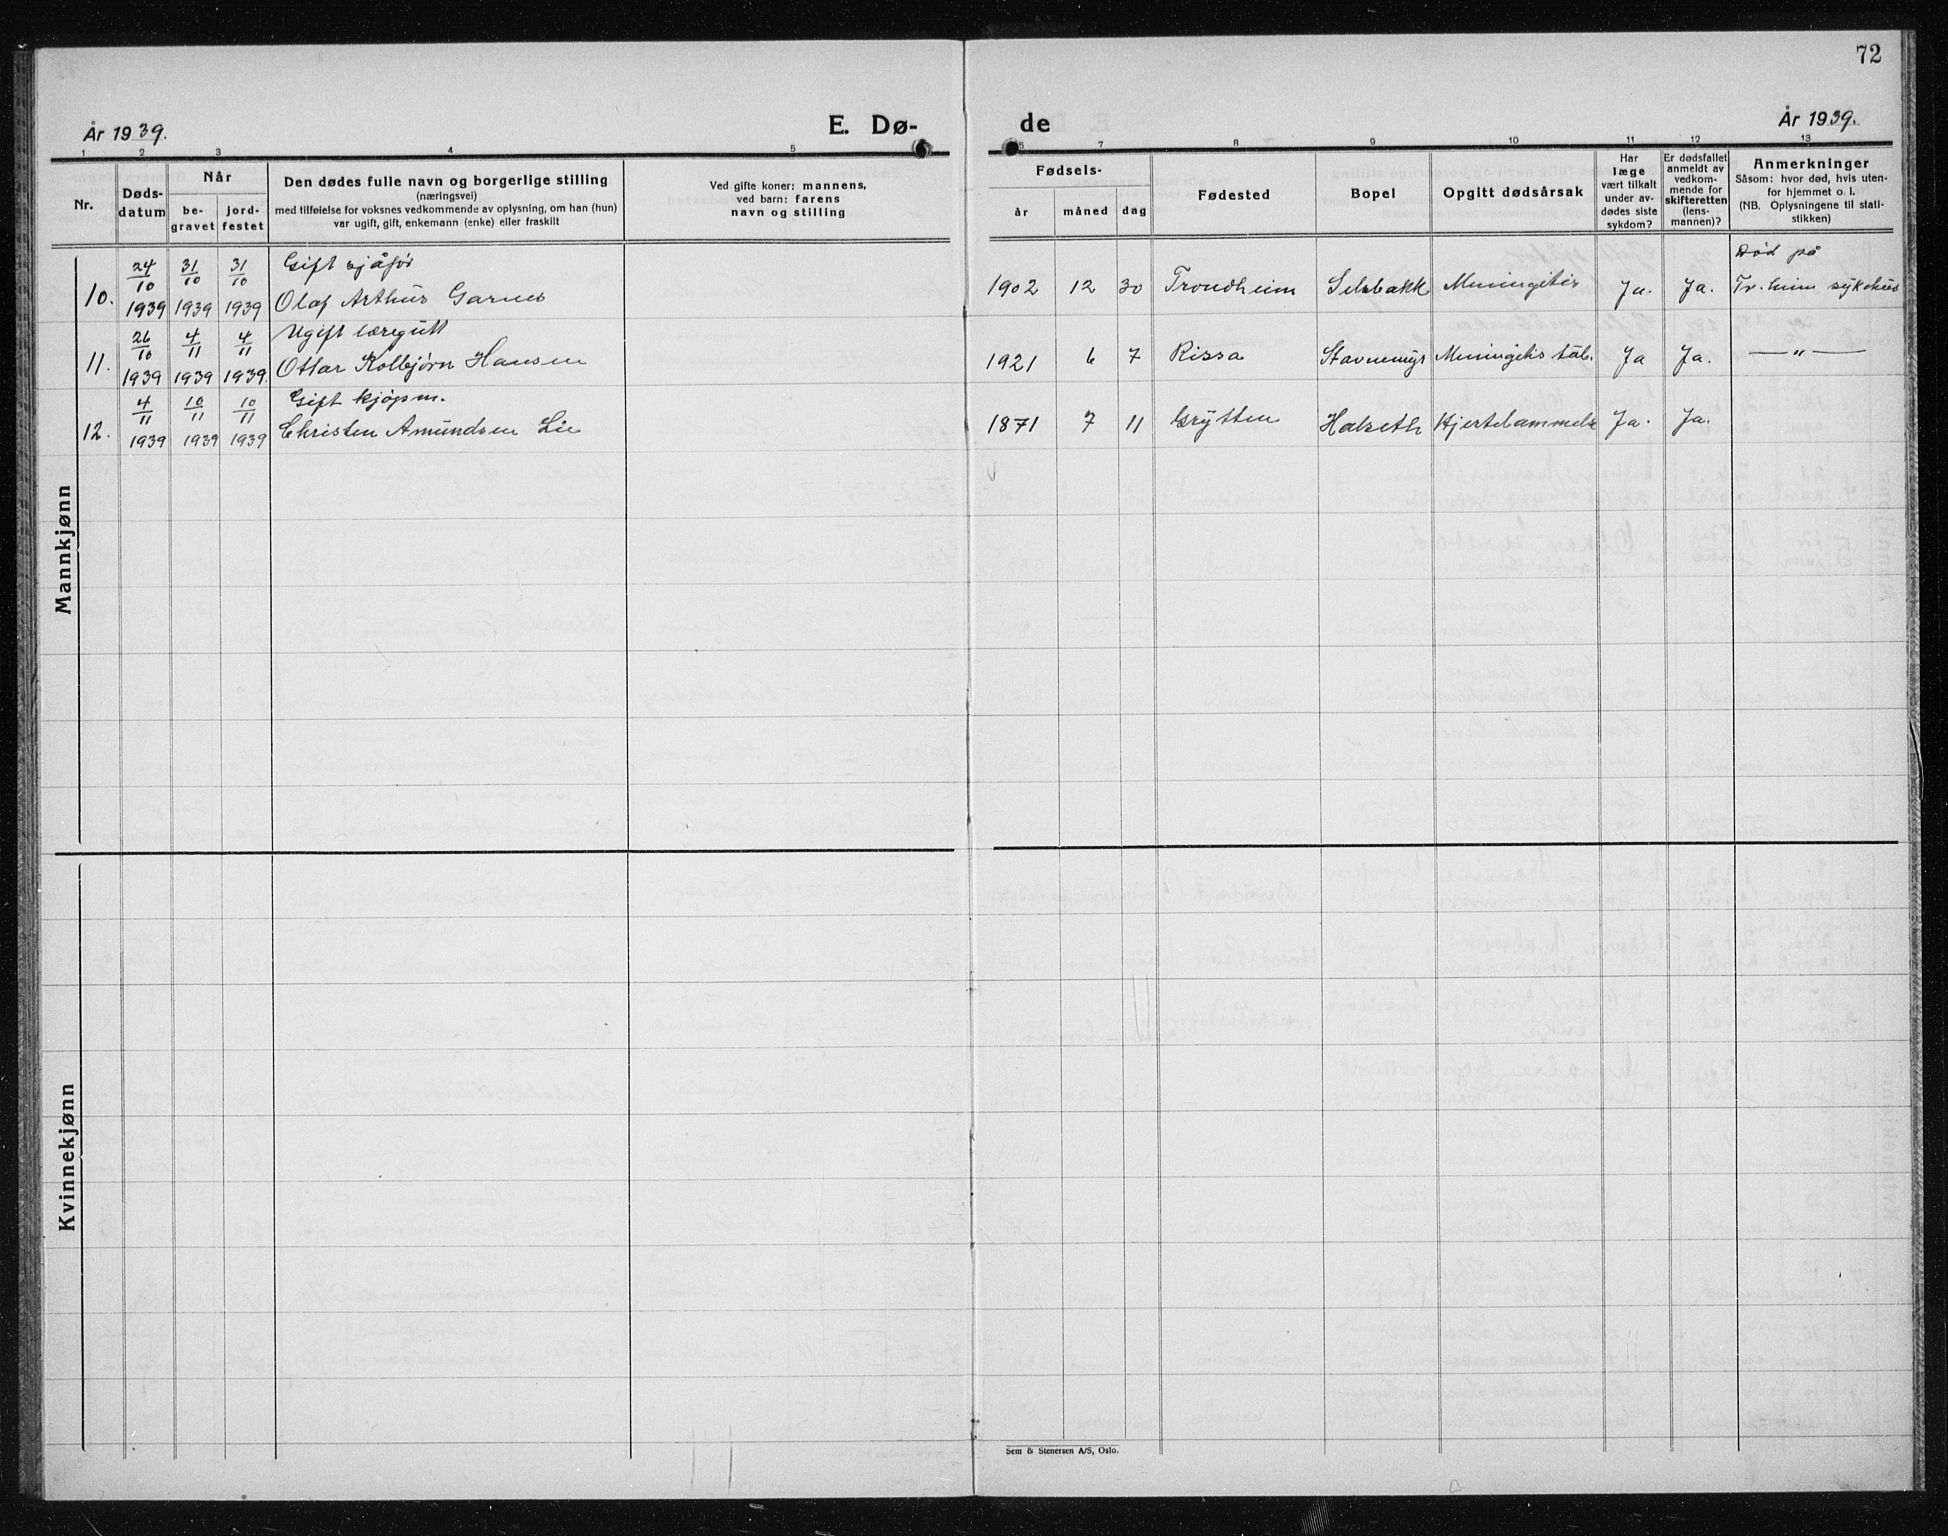 72
År 1939.
E. Dø-
de
År 1939.
1 2 3 4 5 6 7 8 9 10 11 12 13
Nr.
Døds-
datum
Når
be-
gravet
jord-
festet
Den dødes fulle navn og borgerlige stilling
(næringsvei)
med tilføielse for voksnes vedkommende av oplysning, om han (hun)
var ugift, gift, enkemann (enke) eller fraskilt
Ved gifte koner: mannens,
ved barn: farens
navn og stilling
Fødsels-
år måned dag
Fødested
Bopel
Opgitt dødsårsak
Har
læge
vært tilkalt
under av-
dødes siste
sykdom?
Er dødsfallet
anmeldt av
vedkom-
mende for
skifteretten
(lens-
mannen)?
Anmerkninger
Såsom: hvor død, hvis uten-
for hjemmet o. l.
(NB. Oplysningene til stati-
stikken)
Mannkjønn
24/10 31/10 31/10 Gift sjåfør Død på
10. 1939 1939 1939 Olaf Arthur Garnes 1902 12 30 Trondheim Selsbakk Meningitis Ja. Ja. Tr.heim sykehus
26/10 4/11 4/11 Ugift læregutt
11. 1939 1939 1939. Ottar Kolbjørn Hansen 1921 6 7 Rissa Stavnemyr Meningitis tub. Ja Ja. — " —
4/11 10/11 10/11 Gift kjøpm.
12. 1939 1939 1939 Christen Amundsen Lie 1871 7 11 Grytten Halseth Hjertelammelse Ja. Ja.
Kvinnekjønn
Sem & Stenersen A/S, Oslo.